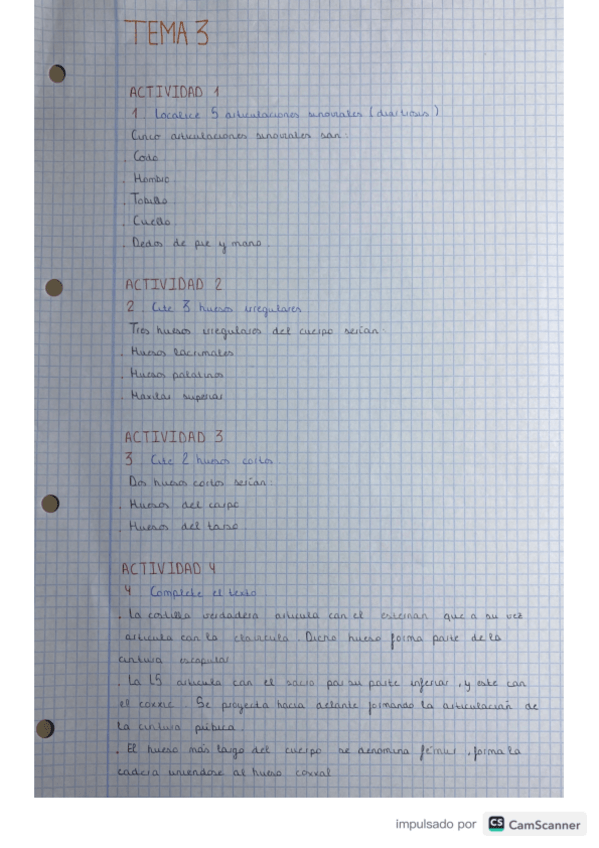 TEMA 3
ACTIVIDAD 1
1 Localice 5 articulaciones sinoviales (diartrosis)
Cinco articulaciones sinoviales son:
. Codo
. Hombro
. Tobillo
. Cuello
. Dedos de pie y mano
ACTIVIDAD 2
2 Cite 3 huesos irregulares
Tres huesos irregulares del cuerpo serían:
. Huesos lacrimales
. Huesos palatinos
. Maxilar superior
ACTIVIDAD 3
3 Cite 2 huesos cortos
Dos huesos cortos serían:
. Huesos del carpo
. Huesos del tarso
ACTIVIDAD 4
4 Complete el texto
. La costilla verdadera articula con el esternón que a su vez
articula con la clavícula. Dicho hueso forma parte de la
cintura escapular
. La L5 articula con el sacro por su parte inferior, y este con
el coxxis. Se proyecta hacia delante formando la articulación de
la cintura púbica.
. El hueso más largo del cuerpo se denomina fémur, forma la
cadera uniendose al hueso coxxal
impulsado por CS CamScanner